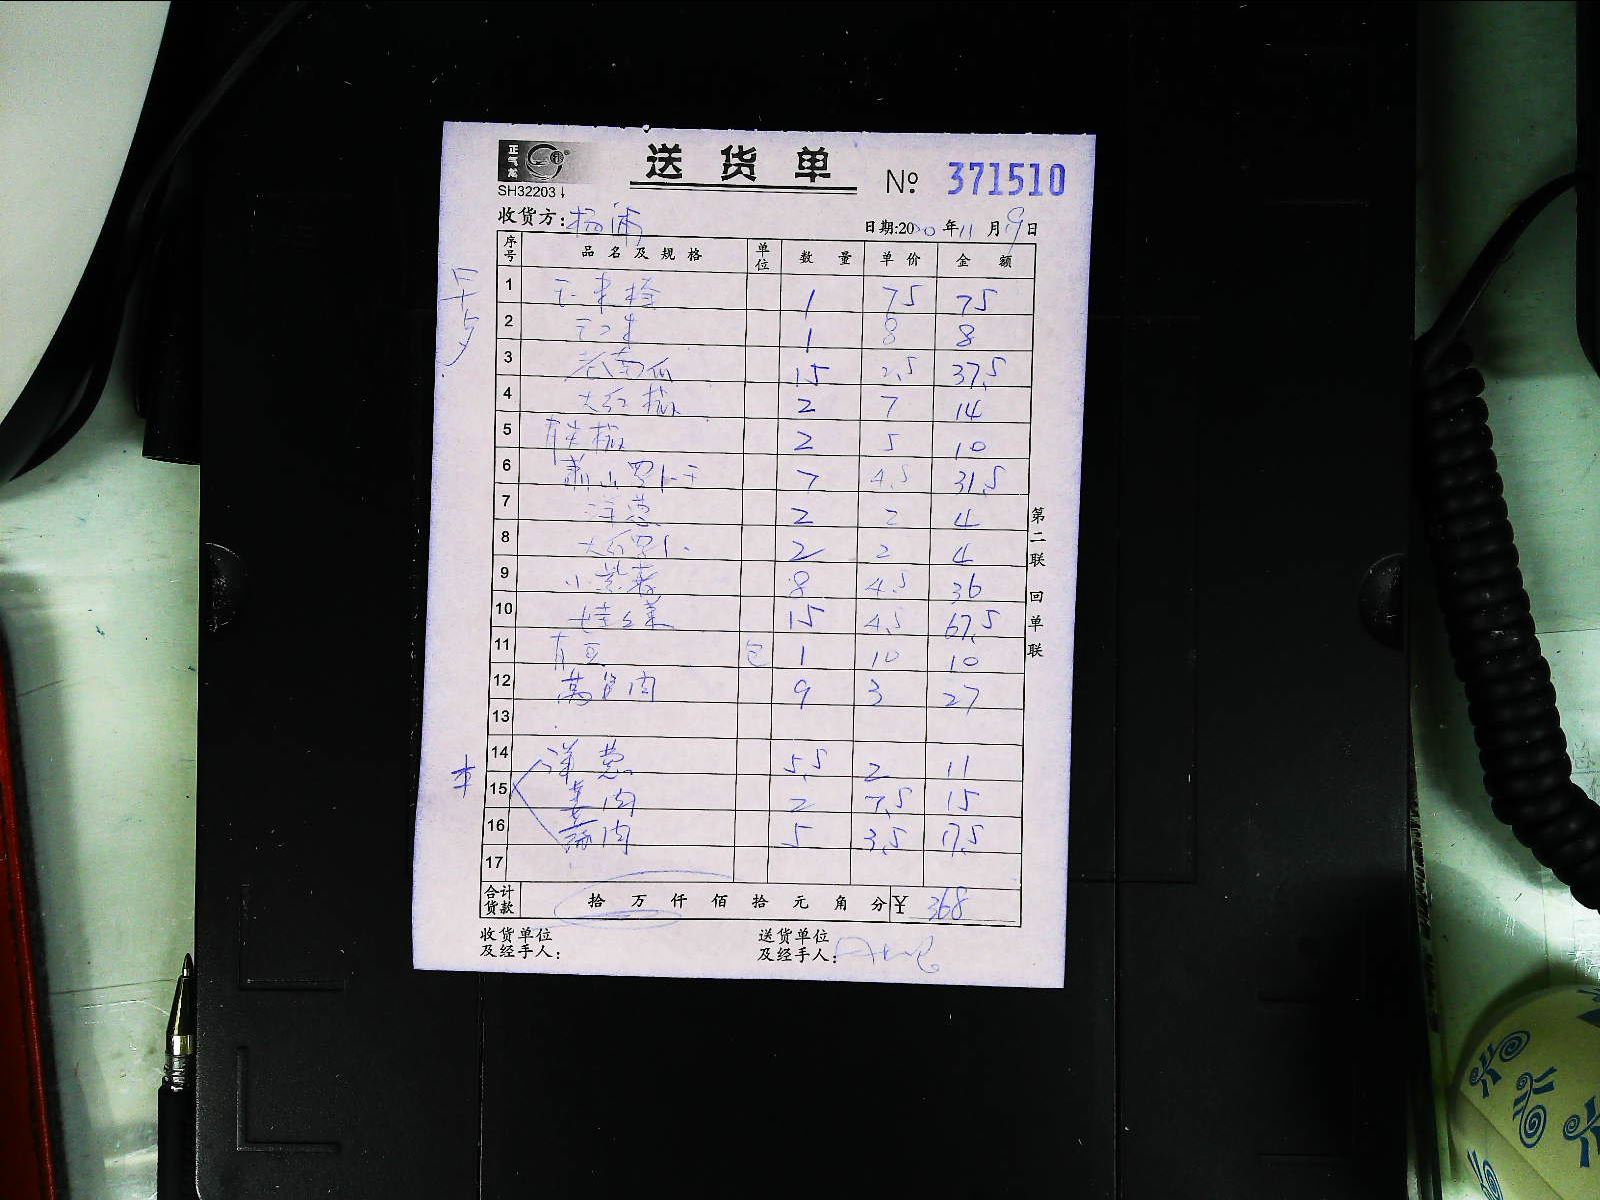 正气龙
送货单
SH32203
№ 371510
收货方:杨浦 日期:2020年11月9日
序号 品名及规格 单位 数量 单价 金额
1 1 75 75
2 1 8 8
3 老南瓜 15 2.5 37.5
4 大红椒 2 7 14
5 青尖椒 2 5 10
6 萧山罗卜干 7 4.5 31.5
7 洋葱 2 2 4
8 大红罗卜 2 2 4
9 小紫薯 8 4.5 36
10 娃娃菜 15 4.5 67.5
11 青豆 包 1 10 10
12 莴笋肉 9 3 27
13
14 洋葱 5.5 2 11
15 姜肉 2 7.5 15
16 蒜肉 5 3.5 17.5
17
合计货款 拾 万 仟 佰 拾 元 角 分 ¥ 368
收货单位及经手人:
送货单位及经手人:
第二联 回单联